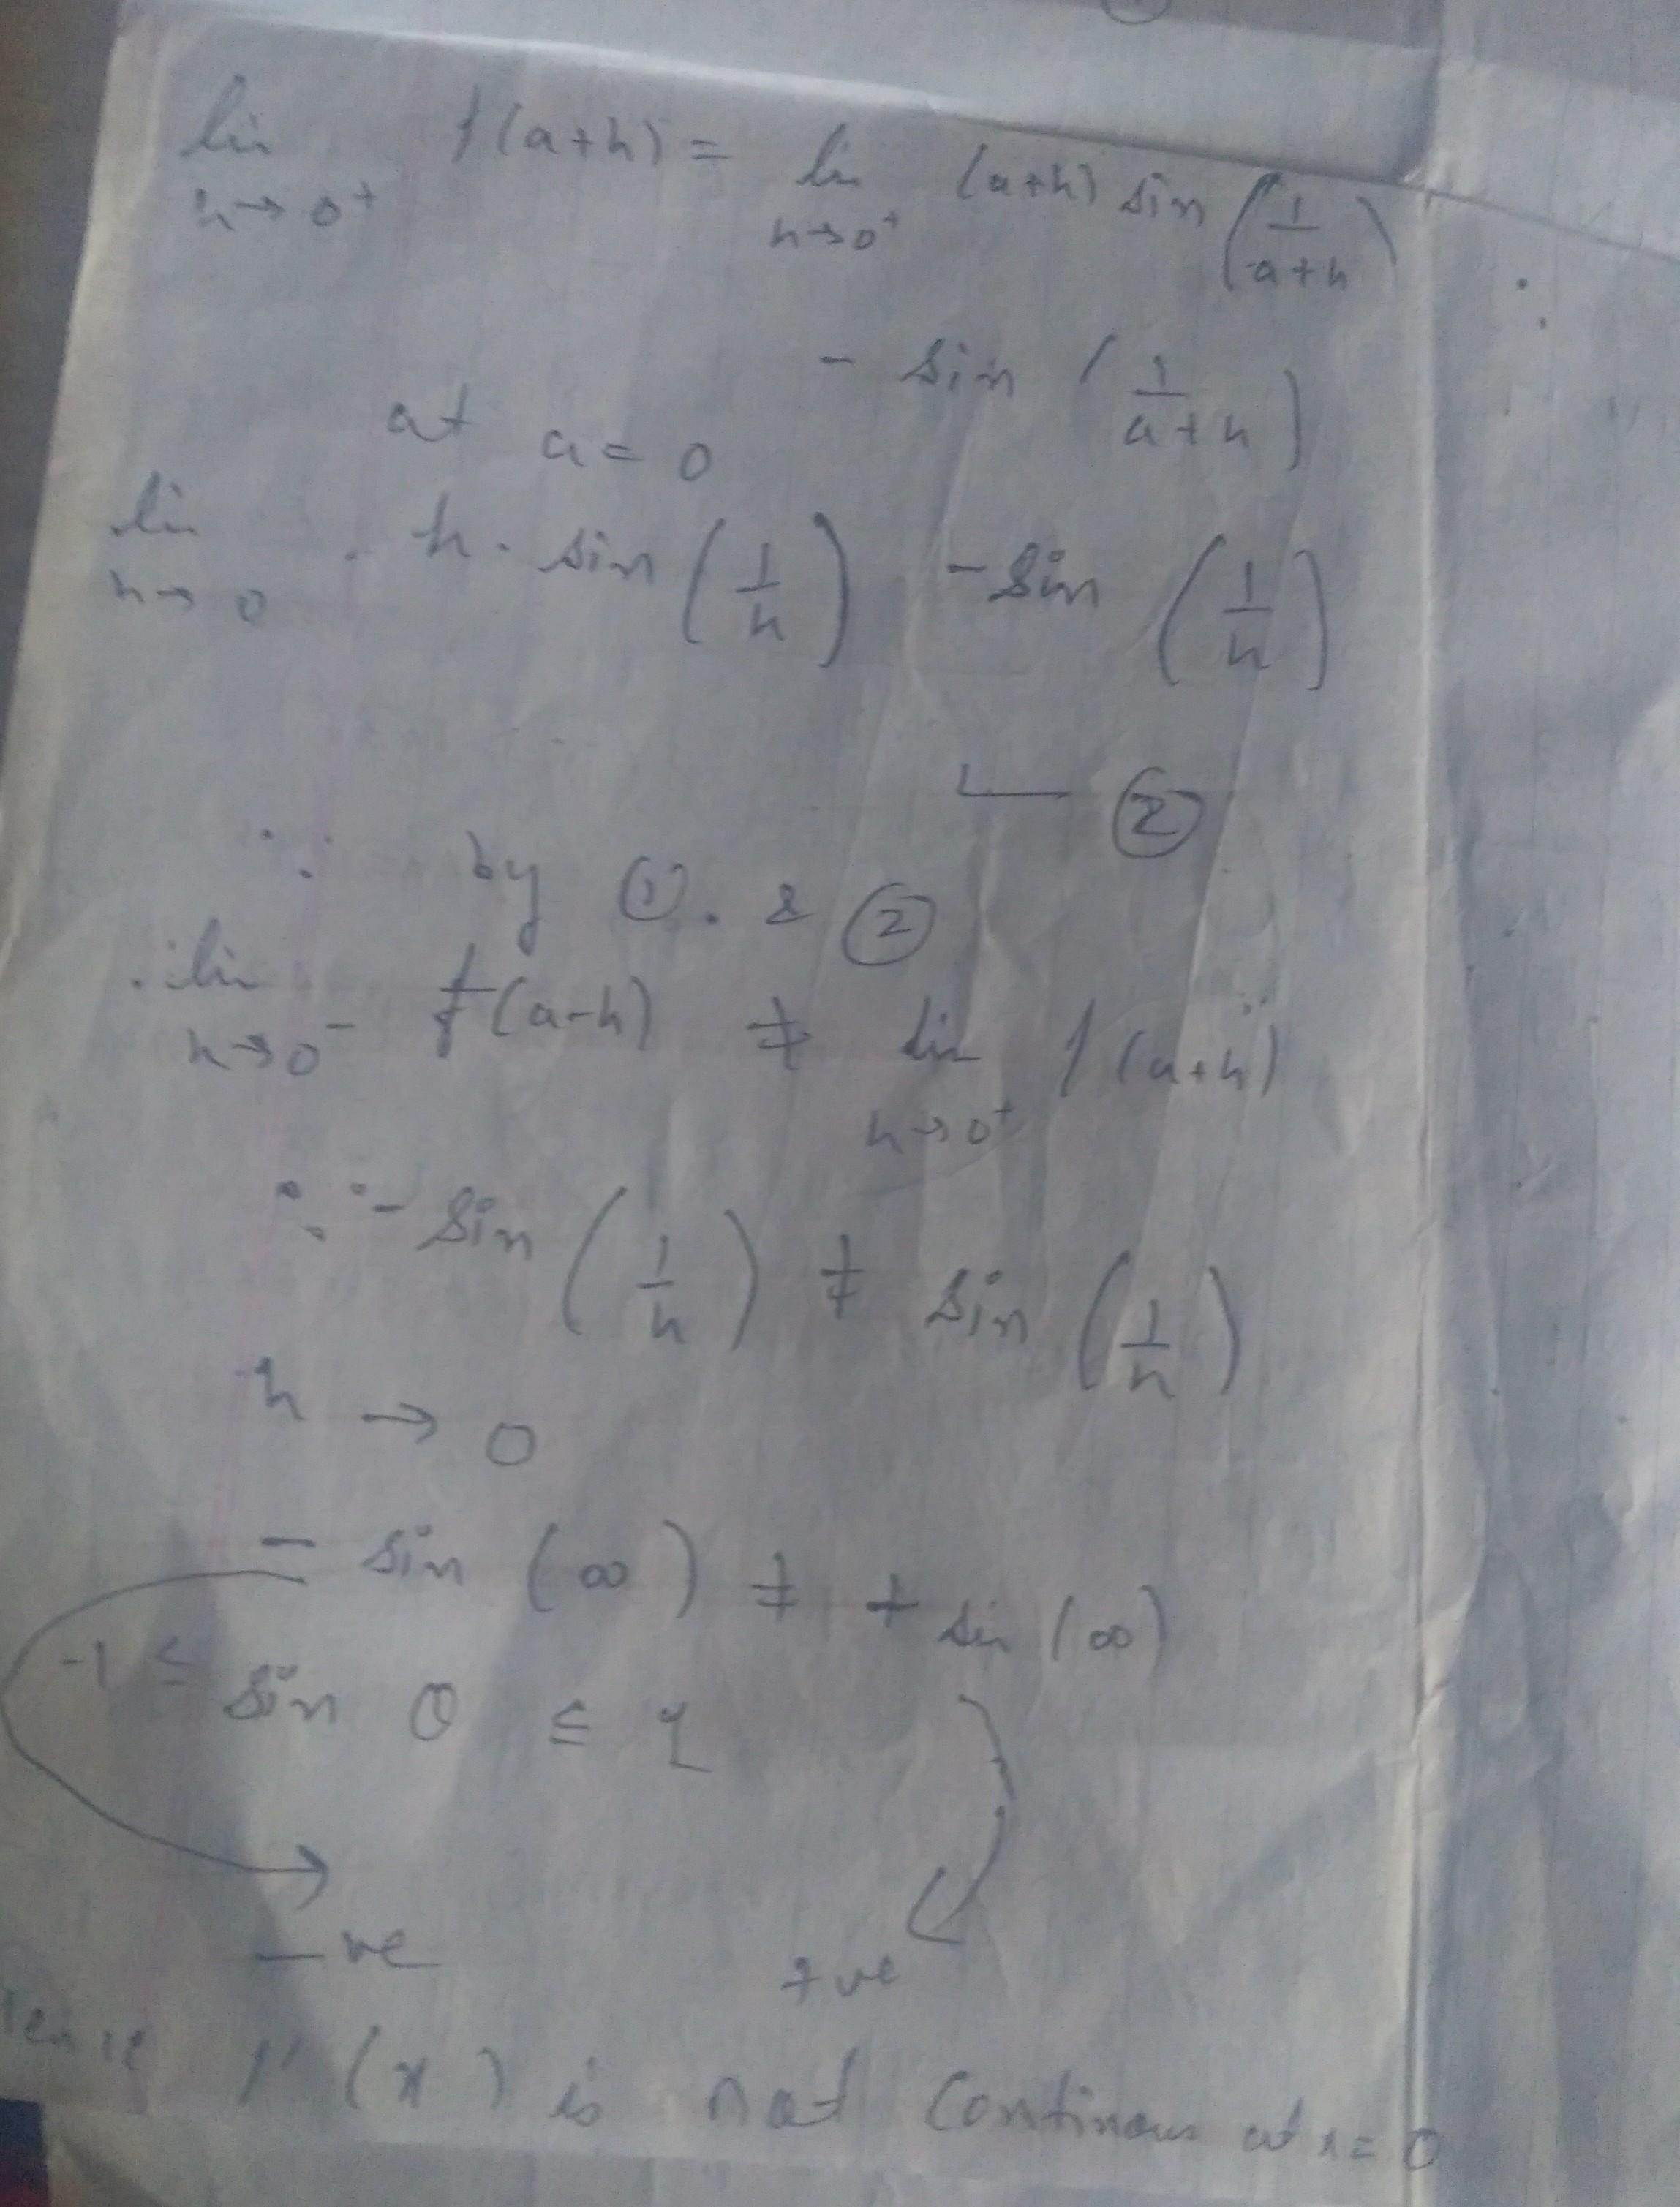 lim f(a+h) = lim (a+h) sin (1/a+h)
h→0⁺ h→0⁺
- sin (1/a+h)
at a = 0
lim . h. sin (1/h) - sin (1/h)
h→0
②
∵ by ①. & ②
lim f(a-h) ≠ lim f(a+h)
h→0⁻ h→0⁺
∵ - sin (1/h) ≠ sin (1/h)
h → 0
- sin (∞) ≠ + sin (∞)
-1 ≤ sin θ ≤ 1
-ve +ve
Hence f'(x) is not continous at x = 0